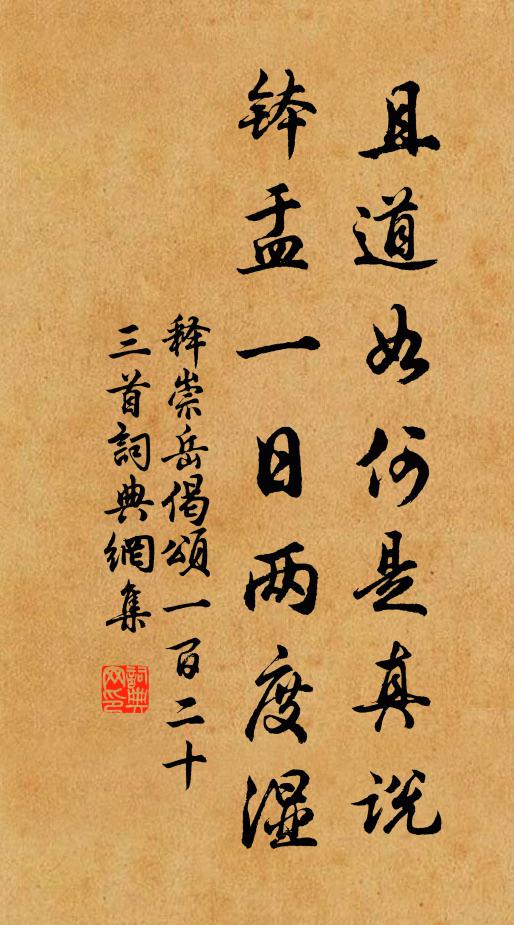 且道如何是真说
钵盂一日两度湿
释崇岳偈頌一百二十
三首詞典網集
詞典
网印